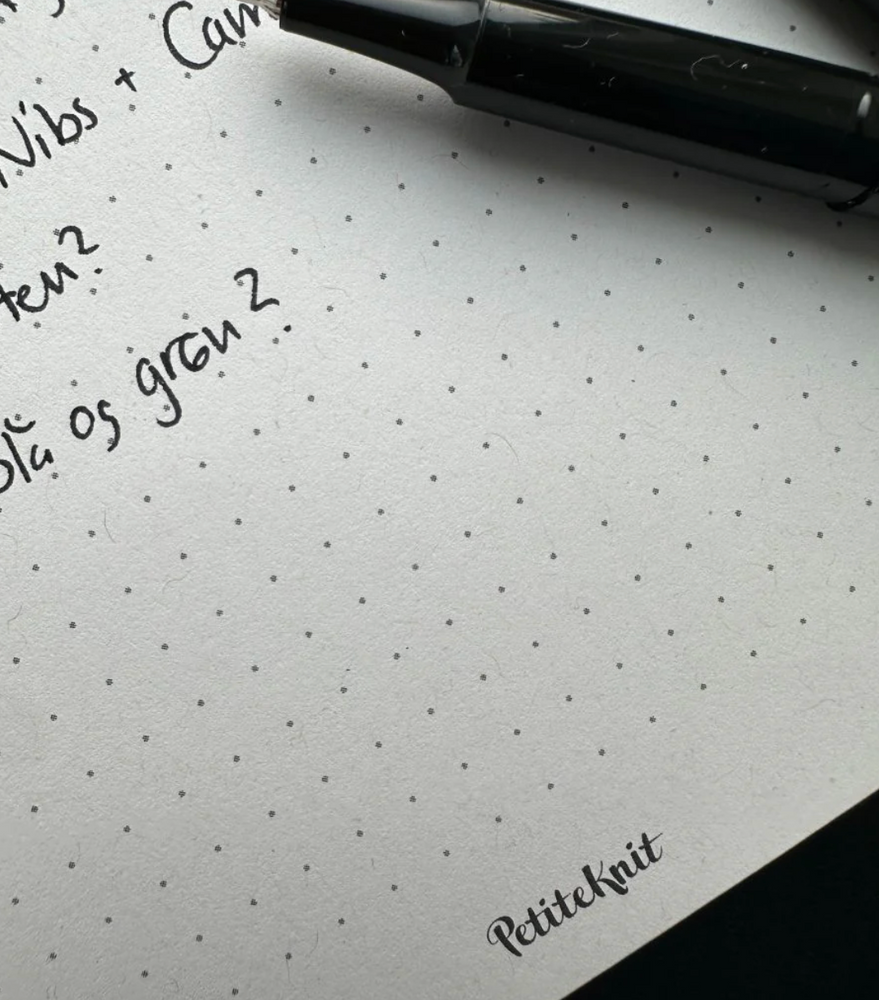 Nibs + Cam
ten?
blå og grøn?
PetiteKnit